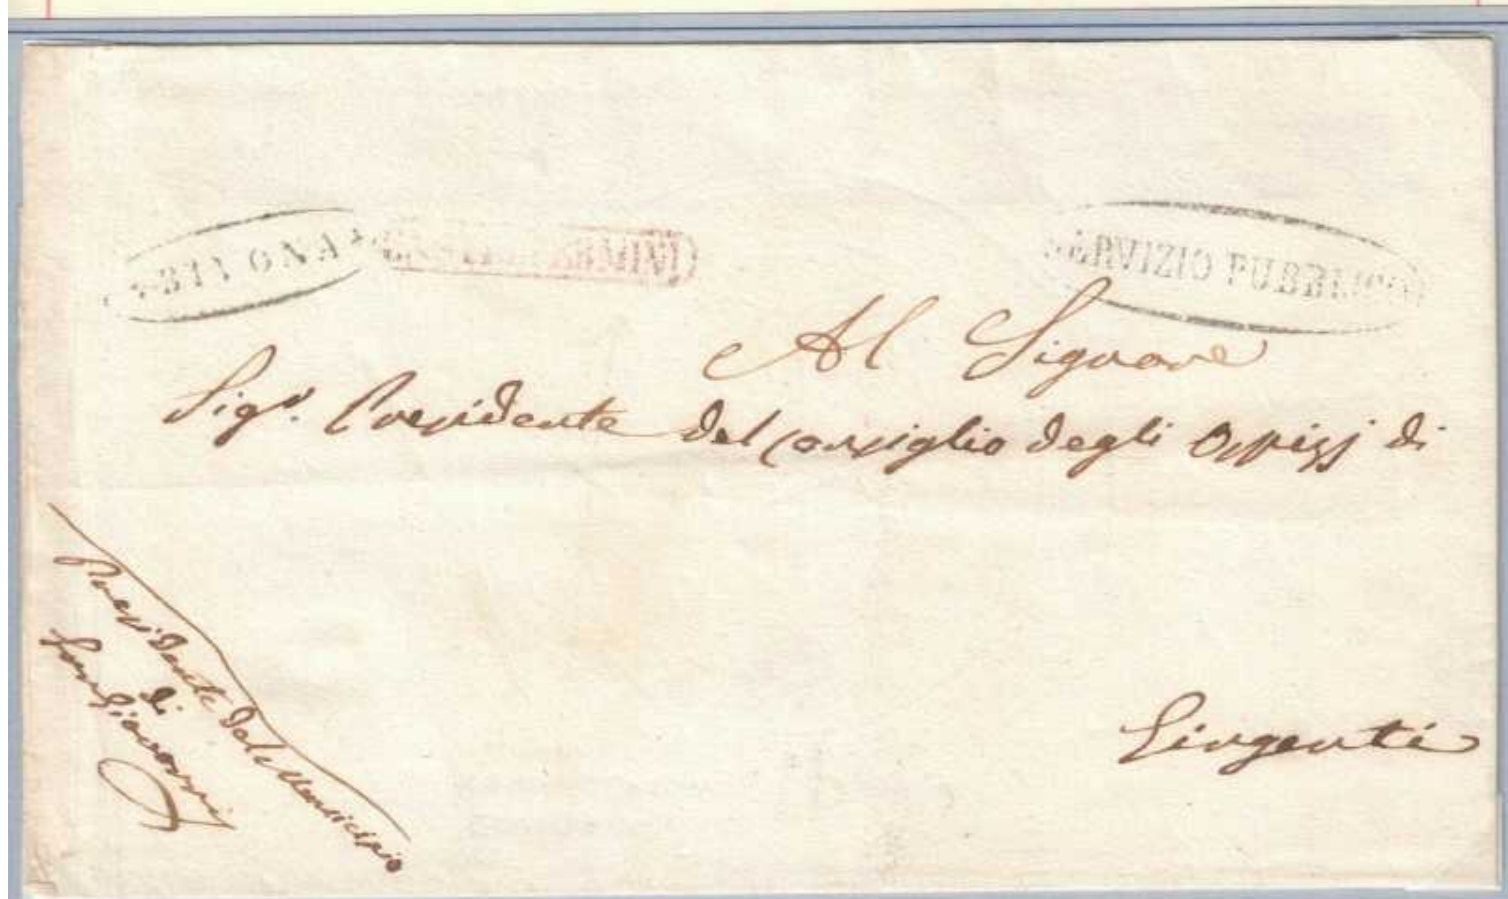 BIVONA
SERVIZIO PUBBLICO
Al Signore
Sigr. Presidente del Consiglio degli Ospizj di
Girgenti
Presidente del Municipio
di
San Giovanni